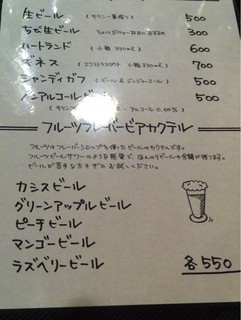 生ビール (キリン一番搾り) 500
ちび生ビール ちょいとだけ 300
ハートランド (小瓶 330ml) 600
ギネス (エクストラスタウト 小瓶 330ml) 700
シャンディガフ (ビール & ジンジャーエール) 500
ノンアルコールビール 500
(キリン アルコール 0.00%)
フルーツフレーバービアカクテル
フルーツのフレーバーシロップを使ったビールのカクテルです。
フルーツビールサワーのような感覚で、ほんのりビールの余韻が残ります。
ビールが苦手な方もぜひお試しください。
カシスビール
グリーンアップルビール
ピーチビール
マンゴービール
ラズベリービール
各550